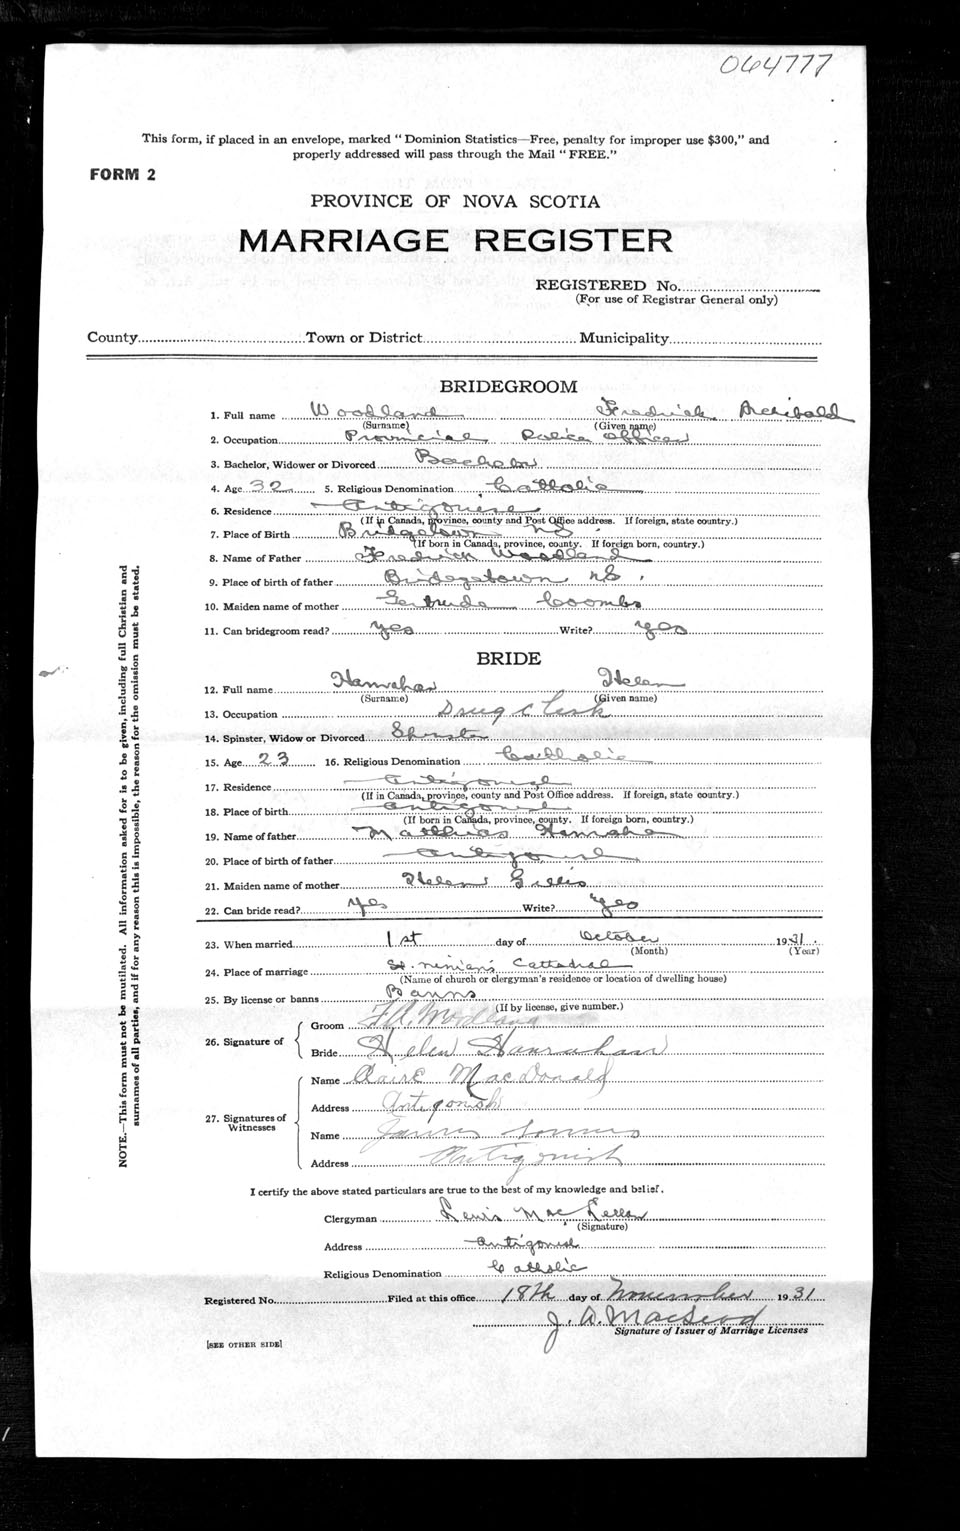 064777
This form, if placed in an envelope, marked "Dominion Statistics—Free, penalty for improper use $300," and
properly addressed will pass through the Mail "FREE."
FORM 2
PROVINCE OF NOVA SCOTIA
MARRIAGE REGISTER
REGISTERED No.
(For use of Registrar General only)
County Town or District Municipality
BRIDEGROOM
1. Full name Woodland Fredrick Archibald
(Surname) (Given name)
2. Occupation Provincial Police Officer
3. Bachelor, Widower or Divorced Bachelor
4. Age 32 5. Religious Denomination Catholic
6. Residence Antigonish
(If in Canada, province, county and Post Office address. If foreign, state country.)
7. Place of Birth Bridgetown NS
(If born in Canada, province, county. If foreign born, country.)
8. Name of Father Fredrick Woodland
9. Place of birth of father Bridgetown NS.
10. Maiden name of mother Gertrude Coombs
11. Can bridegroom read? yes Write? yes
BRIDE
12. Full name Hanrahan Helen
(Surname) (Given name)
13. Occupation Drug Clerk
14. Spinster, Widow or Divorced Spinster
15. Age 23 16. Religious Denomination Catholic
17. Residence Antigonish
(If in Canada, province, county and Post Office address. If foreign, state country.)
18. Place of birth Antigonish
(If born in Canada, province, county. If foreign born, country.)
19. Name of father Matthias Hanrahan
20. Place of birth of father Antigonish
21. Maiden name of mother Helen Gillis
22. Can bride read? Yes Write? Yes
23. When married 1st day of October 1931.
(Month) (Year)
24. Place of marriage St. Ninian's Cathedral
(Name of church or clergyman's residence or location of dwelling house)
25. By license or banns Banns
(If by license, give number.)
26. Signature of
Groom F. A. Woodland
Bride Helen Hanrahan
27. Signatures of
Witnesses
Name Claire MacDonald
Address Antigonish
Name James
Address Antigonish
I certify the above stated particulars are true to the best of my knowledge and belief.
Clergyman Lewis MacLellan
(Signature)
Address Antigonish
Religious Denomination Catholic
Registered No. Filed at this office 18th day of November 1931
J. A. MacLeod
Signature of Issuer of Marriage Licenses
[SEE OTHER SIDE]
NOTE.—This form must not be mutilated. All information asked for is to be given, including full Christian and
surnames of all parties, and if for any reason this is impossible, the reason for the omission must be stated.